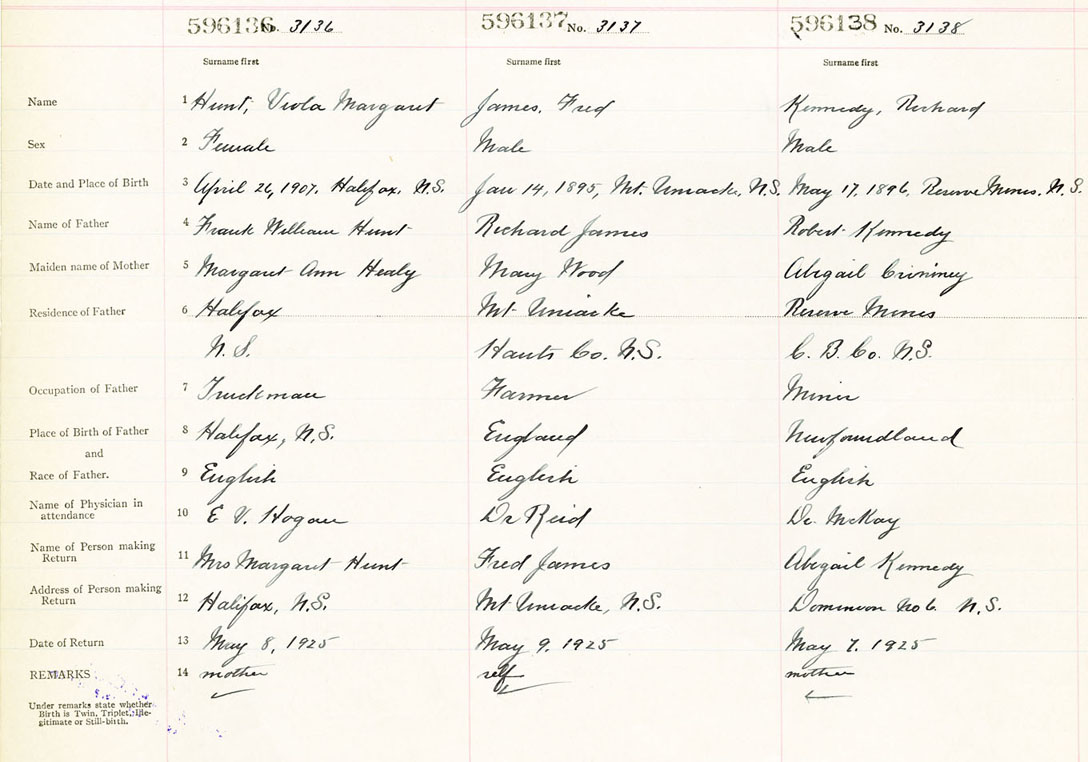 596136 No. 3136 596137 No. 3137 596138 No. 3138
Surname first Surname first Surname first
Name 1 Hunt, Viola Margaret James, Fred Kennedy, Richard
Sex 2 Female Male Male
Date and Place of Birth 3 April 26, 1907, Halifax, N.S. Jan 14, 1895, Mt. Uniacke, N.S. May 17, 1896, Reserve Mines, N.S.
Name of Father 4 Frank William Hunt Richard James Robert Kennedy
Maiden name of Mother 5 Margaret Ann Healy Mary Wood Abigail
Residence of Father 6 Halifax Mt Uniacke Reserve Mines
N.S. Hants Co. N.S. C. B. Co. N.S.
Occupation of Father 7 Truckman Farmer Miner
Place of Birth of Father 8 Halifax, N.S. England Newfoundland
and
Race of Father. 9 English English English
Name of Physician in
attendance 10 E V. Hogan Dr Reid Dr. McKay
Name of Person making
Return 11 Mrs Margaret Hunt Fred James Abigail Kennedy
Address of Person making
Return 12 Halifax, N.S. Mt Uniacke, N.S. Dominion No 6. N.S.
Date of Return 13 May 8, 1925 May 9, 1925 May 7, 1925
REMARKS 14 mother self mother
Under remarks state whether
Birth is Twin, Triplet, Ille-
gitimate or Still-birth.